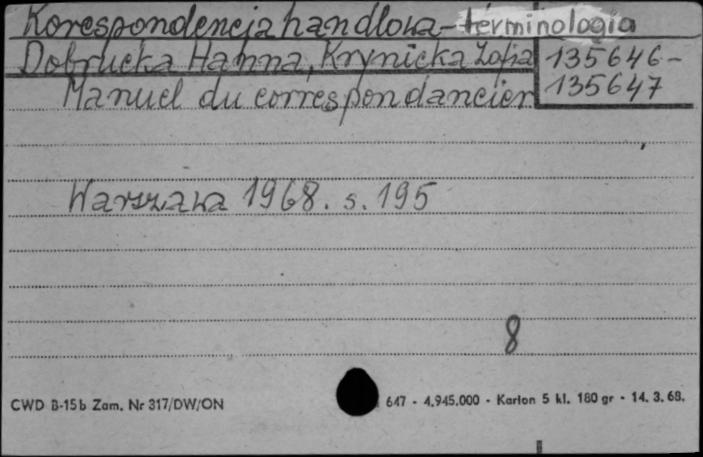 Korespondencja handlowa - terminologia
Dobrucka Hanna, Krynicka Zofia
135646-
135647
Manuel du correspondancier
Warszawa 1968. s. 195
8
CWD B-15b Zam. Nr 317/DW/ON
647 - 4.945.000 - Karton 5 kl. 180 gr - 14. 3. 68.